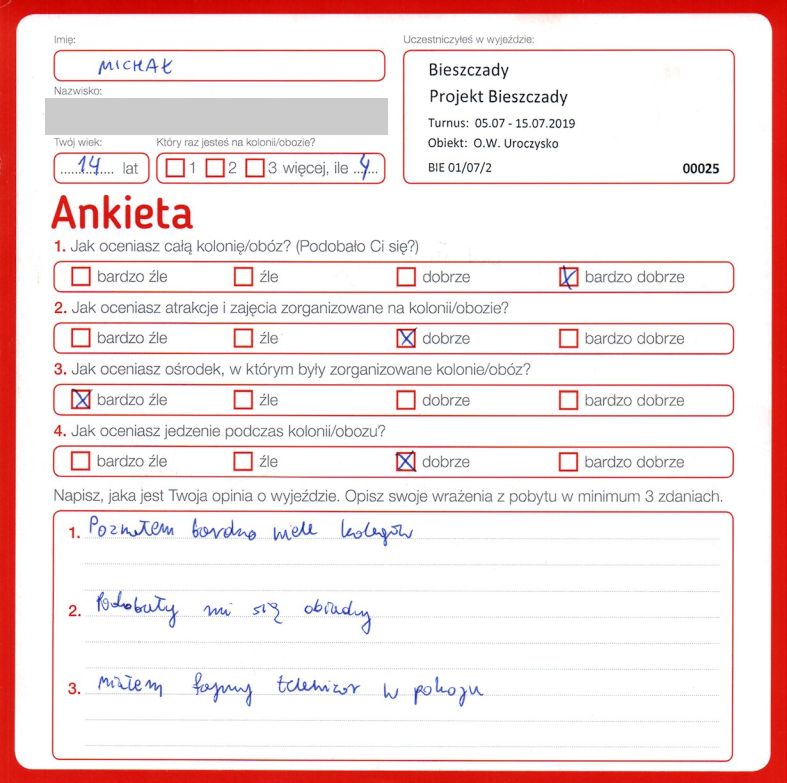 Imię:
MICHAŁ
Nazwisko:
Twój wiek:
14 lat
Który raz jesteś na kolonii/obozie?
1 2 3 więcej, ile 4
Uczestniczyłeś w wyjeździe:
Bieszczady
Projekt Bieszczady
Turnus: 05.07 - 15.07.2019
Obiekt: O.W. Uroczysko
BIE 01/07/2 00025
Ankieta
1. Jak oceniasz całą kolonię/obóz? (Podobało Ci się?)
bardzo źle źle dobrze bardzo dobrze
2. Jak oceniasz atrakcje i zajęcia zorganizowane na kolonii/obozie?
bardzo źle źle dobrze bardzo dobrze
3. Jak oceniasz ośrodek, w którym były zorganizowane kolonie/obóz?
bardzo źle źle dobrze bardzo dobrze
4. Jak oceniasz jedzenie podczas kolonii/obozu?
bardzo źle źle dobrze bardzo dobrze
Napisz, jaka jest Twoja opinia o wyjeździe. Opisz swoje wrażenia z pobytu w minimum 3 zdaniach.
1. Poznałem bardzo wiele kolegów
2. Podobały mi się obiady
3. miałem fajny telewizor w pokoju